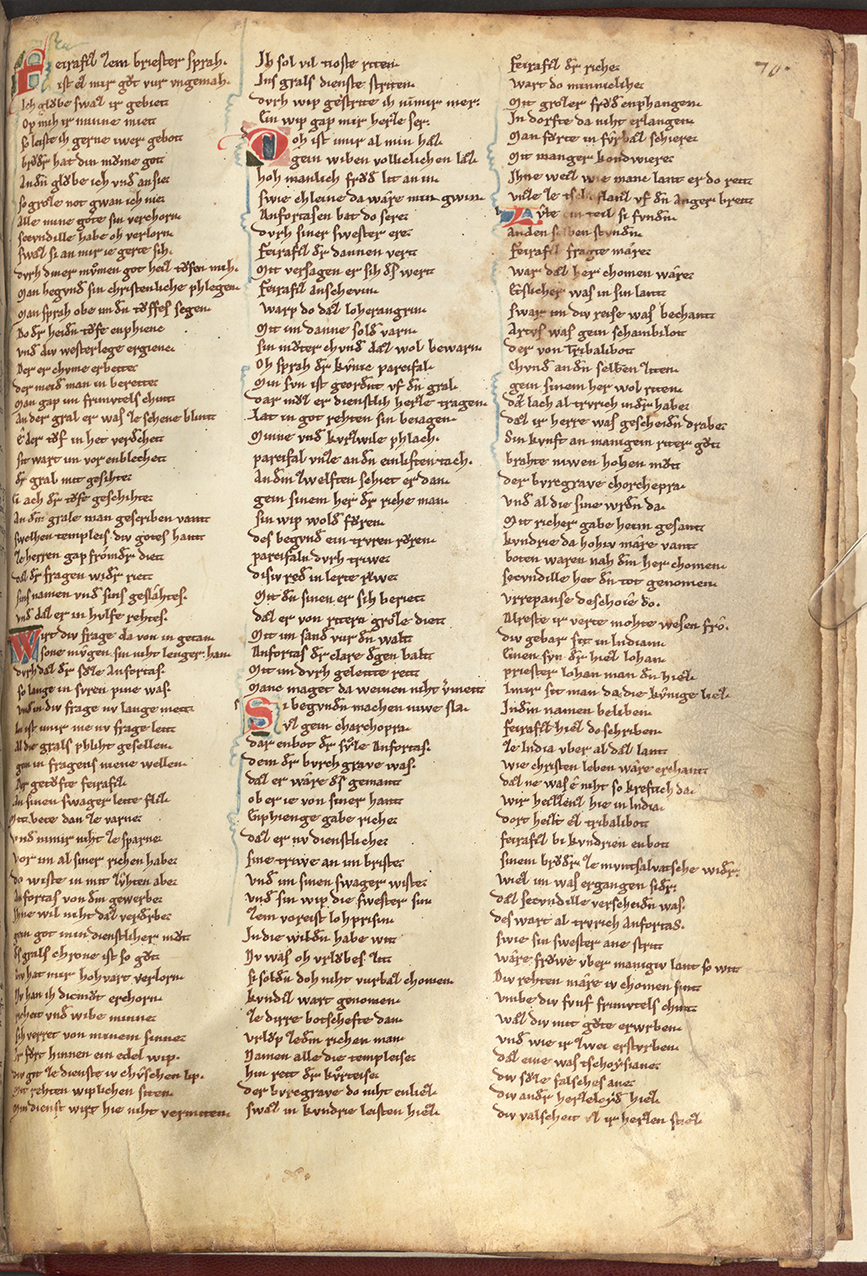 Feirafiz zem briester sprah.
ist ez mir gŏt vur vngemah.
Ich glŏbe swaz ir gebiett
Op mih ir minne miett
so leiste ih gerne iwer gebott
brŏdr hat din mŏme gott
An dn glŏbe ich vnd an sie
so groze not gwan ich nie
Alle mine gote sin verchorn
secvndille habe oh verlorn
swaz si an mir ie gerte sih.
dvrh diner mŏmen got heiz tŏfen mih.
Man begvnd sin christenliche phlegen
Man sprah obe im dn tŏffes segen
Do dr heidn tŏfe enphiene
vnd div westerlege ergiene
Der er chvme erbette
der meid man in berette
Man gap im frimvtels chint
An der gral er was ze sehene blint
E der tŏf in het verdchett
sit wart im vor enblechett
dr gral mit gesihte
Ei nach dr tŏfe geschihte
An dm grale man gescriben vant
swelhen templeis div gotes hantt
ze herren gap frŏmdr diett
daz dr fragen widr riett
sins namen vnd sins geslæhtes.
vnd daz er in hvlfe rehtes.
Wirt div frage da von in getan
sone mŏgen sin niht lenger han
dvrh daz dr sŏze Anfortas.
so lange in svren pine was.
vndin div frage nv lange meitt
In ist immr me nv frage leitt
Al die grals phliht gesellen
gein in fragens niene wellen
Der getŏfte feirafiz
An sinen swager leite fliz
Mit bete dan ze varne
vnd nimir niht ze sparne
vor im al siner richen habe
do wiste in mit zŏhten abe
Anfortas von dm gewerbe
Ihne wil niht daz verdrbe
gein got min dienstlicher mŏt
Ds grals chrone ist so gŏt
Div hat mir hohvart verlorn
Nv han ih diemŏt erchorn
richeit vnd wibe minne
sih verret von minem sinne
Ir fŏrt hinnen ein edel wip.
div git ze dienste iv chŷschen lip.
Mit rehten wiplichen siten
Min dienst wirt hie niht vermiten
Ih sol vil tioste riten
Ins grals dienste striten
dvrh wip gestrite ih nimir mer.
Ein wip gap mir herze ser.
Doh ist imir al min haz
gein wiben volleclichen laz
hoh manlich frŏd lit an in
swie chleine da wære min gwin
Anfortasen bat do sere
dvrh siner swester ere.
Feirafiz dr dannen vert
Mit versagen er sih ds wert
Feirafiz anschevin
Warp do daz loherangrin
Mit im danne sold varn
Sin mŏter chvnd daz wol bewarn
Oh sprah dr kŭnic parcifal
Min svn ist geordnt vf dn gral
dar mŏz er dienstlih herze tragen
Lat in got rehten sin beiagen
Minne vnd kvrzwile phlach
parcifal vnze an dn einliften tach.
An dm zwelften schiet er dan
gein sinem her dr riche man
sin wip wold fŏren
des begvnd ein trvren rŏren
parcifaln dvrh triwe
disiv red in lerte riwe
Mit dn sinen er sih beriett
daz er von ritern groze diett
Mit im sand vur dn waltt
Anfortas dr clare dgen baltt
Mit im dvrh geleitte reitt
Mane maget da weinen niht vmeitt
Si begvndn machen niwe sla
vz gein charchopra
dar enbot dr sŏze Anfortas.
dem dr bvrch grave was.
daz er wære ds gemant
ob er ie von siner hant
Enphienge gabe riche
daz er nv dienstliche
Sine triwe an im brise
vnd im sinen swager wise
vnd sin wip die swester sin
zem voreist lohprisin
In die wildn habe wit
Nv was oh vrlŏbes zit
si soldn doh niht vurbaz chomen
kvndri wart genomen
ze dirre botschefte dan
vrlŏp zedm richen man
Namen alle die templeise
hin reit dr kŭrteise
der bvrcgrave do niht enliez
swaz in kvndrie leisten hiez
Feirafiz dr riche
Wart do minneliche
Mit grozer frŏd enphangen
In dorfte da niht erlangen
Man fŏrte in fŭrbaz schiere
Mit manger kondwiere
Ihne weiz wie mane lant er do reit
vnze ze tschoflanz vf dn Anger breit
Lŭte ein teil si fvndn
an den selben stvndn
Feirafiz fragte mære
war daz her chomen wære
Etslicher was in sin lantt
swar im div reise was bechantt
Artvs was gein schambilott
der von Tribalibott
Chvnd an dn selben ziten
gein sinem her wol riten
daz lach al trvrich in dr habe
daz ir herre was gescheidn drabe
Sin kvnft an manigem riter gŏt
brahte niwen hohen mŏt
der bvrcgrave chorchopra
vnd al die sine wrdn da
Mit richer gabe heim gesant
kvndrie da hohiv mære vant
boten waren nah dm her chomen
secvndille het dr tot genomen
vrrepanse deschoie do.
Alreste ir verte mohte wesen fro.
div gebar sit in Indian
Einen svn dr hiez Iohan
priester Iohan man dn hiez
Imir sit man da die kŭnige liez
In dm namen beliben
Feirafiz hiez do schriben
ze India vber al daz lant
wie christen leben wære erchant
daz ne was ê niht so kreftich da
wir heizenz hie in India
dort heizt ez tribalibott
Feirafiz bi kvndrien enbott
sinem brŏdr ze mvntsalvatsche widr
wiez im was ergangen sidr
daz secvndille verscheidn was.
des wart al trvrich Anfortas.
swie sin swester ane stritt
wære frŏwe vber manigiv lant so witt
Div rehten mære iv chomen sint
vmbe div fvnf frimvtels chint
waz div mit gŏte erwrben
vnd wie ir zwei erstvrben
daz eine was tschoŷsiane
div sŏze falsches ane
div andr herzeleŷd hiez
div valscheit vz ir herzen stiez